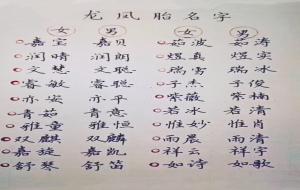 龙凤胎名字
女 男 女 男
嘉宝 嘉贝 茹波 茹涛
润晴 润朗 煜真 煜实
文慧 文聪 瑞雪 瑞冰
睿敏 睿意 子杰 子俊
亦安 亦平 紫薇 紫楠
青茹 青意 若冰 若清
雅童 雅恒 惟妙 惟肖
双麒 双麟 雨晨 雨清
嘉旋 嘉凯 祥云 祥宇
舒琴 舒笛 如诗 如歌